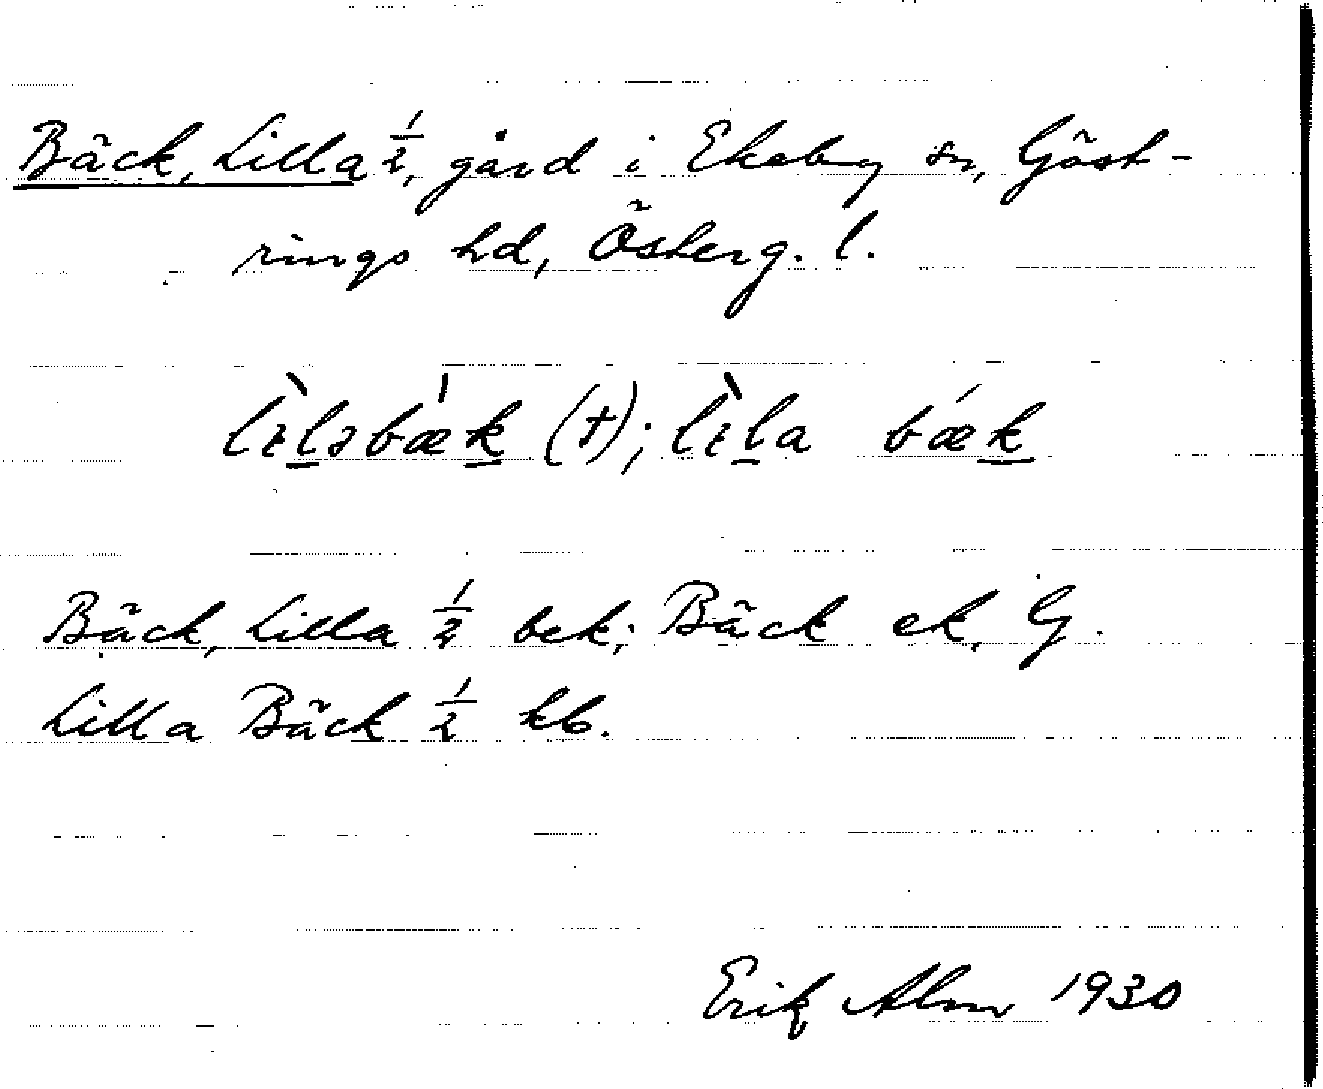 Bäck, Lilla ½, gård i Ekeby sn, Göst-
rings hd, Österg. l.
lɩ̀lɜbæ̍k (†); lɩ̀la bǽk
Bäck, Lilla ½ bek; Bäck ek, G.
Lilla Bäck ½ kb.
Erik Alm 1930